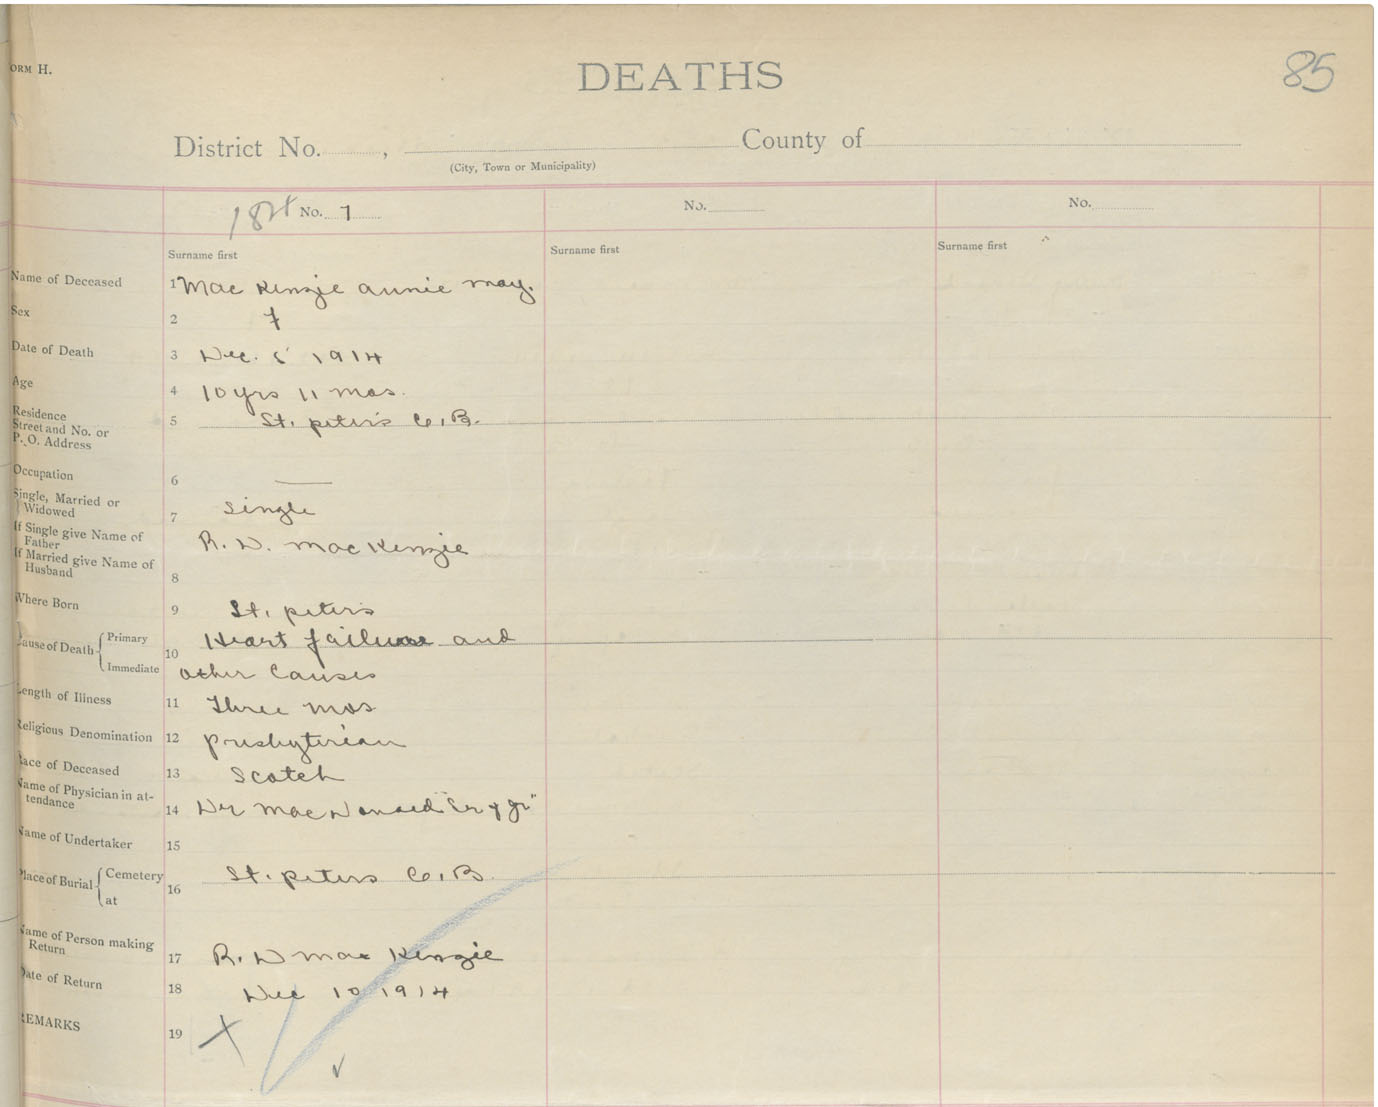 ORM H.
DEATHS
85
District No. , County of
(City, Town or Municipality)
No. 7 No. No.
Surname first Surname first Surname first
Name of Deceased 1 Mac Kenzie annie may.
Sex 2 f
Date of Death 3 Dec. 5 1914
Age 4 10 yrs 11 mos.
Residence
Street and No. or 5 St. peter's C.B.
P. O. Address
Occupation 6 —
Single, Married or
Widowed 7 Single
If Single give Name of
Father R. D. MacKenzie
If Married give Name of
Husband 8
Where Born 9 St. peter's
Cause of Death Primary Heart failure and
10
Immediate other Causes
Length of Illness 11 Three mos
Religious Denomination 12 presbyterian
Race of Deceased 13 Scotch
Name of Physician in at-
tendance 14 Dr MacDonald "Sr & Jr"
Name of Undertaker 15
Place of Burial Cemetery St. peters C.B.
at 16
Name of Person making
Return 17 R. D Mac Kenzie
Date of Return 18 Dec 10 1914
REMARKS 19 X